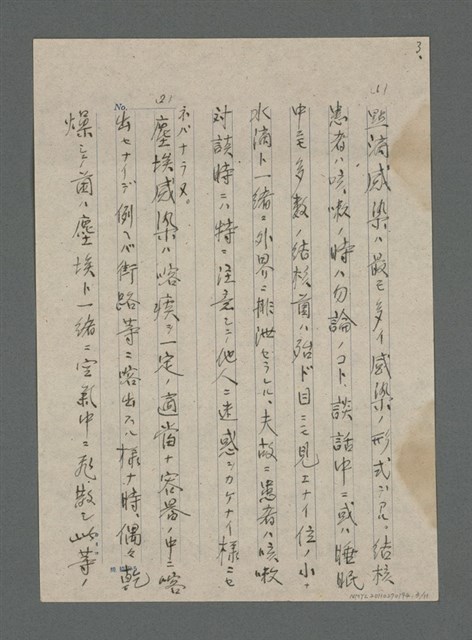 3.
(1) 點滴感染ハ最モ多イ感染ノ形式デアル。結核
患者ハ咳嗽ノ時ハ勿論ノコト、談話中ニ或ハ睡眠
中ニモ多数ノ結核菌ハ殆ド目ニモ見エナイ位ノ小
水滴ト一緒ニ外界ニ排泄セラレル。夫故ニ患者ハ咳嗽
対談時ニハ特ニ注意シテ他人ニ迷惑ヲカケナイ様ニセ
ネバナラヌ。
(2) 塵埃感染ハ喀痰ヲ一定ノ適当ナ容器ノ中ニ喀
出セナイデ例ヘバ街路等ニ喀出スル様ナ時、偶々乾
燥シテ菌ハ塵埃ト一緒ニ空気中ニ飛散シ此等ノ
No.